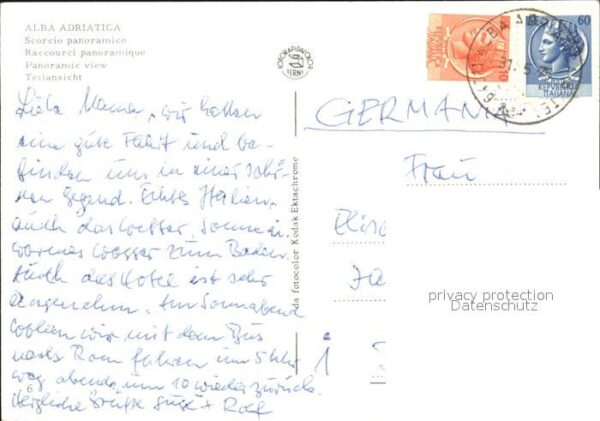 ALBA ADRIATICA
Scorcio panoramico
Raccourci panoramique
Panoramic view
Teilansicht
FOTORAPIDACOLOR
TERNI
Liebe Mama, wir hatten
eine gute Fahrt und be-
finden uns in einer schö-
nen Gegend. Echtes Italien,
auch das Wetter, Sonne u.
warmes Wasser zum Baden.
Auch das Hotel ist sehr
angenehm. Am Sonnabend
wollen wir mit dem Bus
nach Rom fahren um 5 Uhr
weg abends um 10 wieder zurück.
Herzliche Grüße + Rolf
6
da fotocolor Kodak Ektachrome
REPUBBLICA
ITALIANA
10
60
REPUBBLICA
ITALIANA
31.5
GERMANIA
Frau
privacy protection
Datenschutz